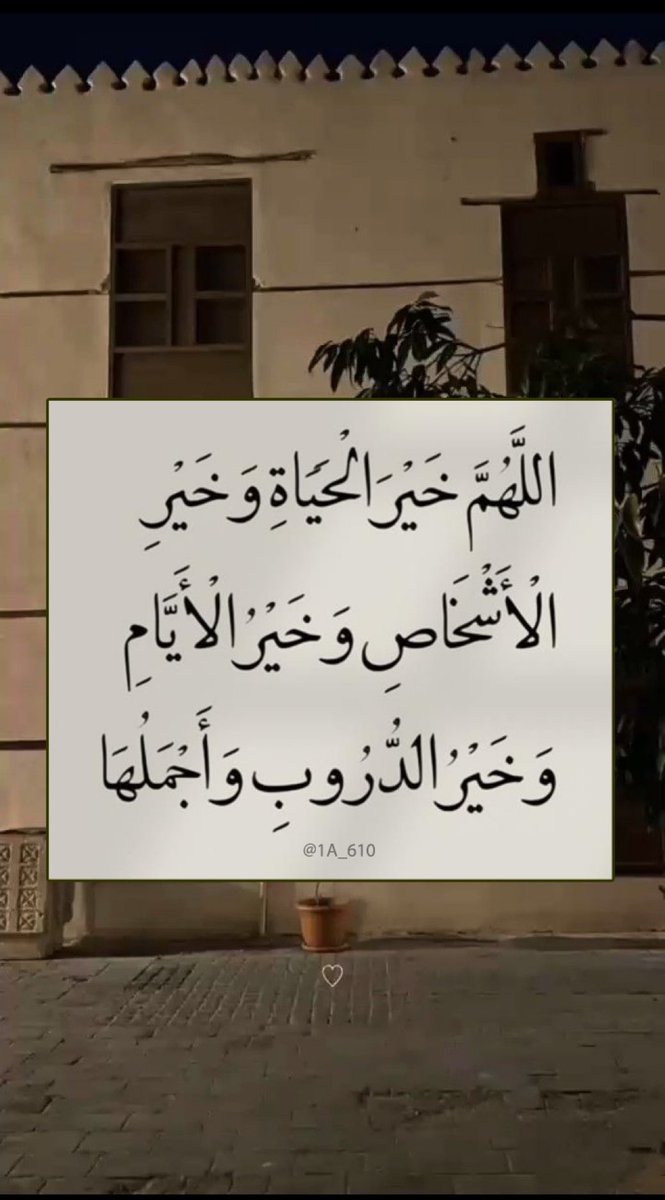 اللَّهُمَّ خَيْرَ الْحَيَاةِ وَ خَيْرِ
الْأَشْخَاصِ وَ خَيْرُ الْأَيَّامِ
وَ خَيْرُ الدُّرُوبِ وَ أَجْمَلُهَا
@1A_610